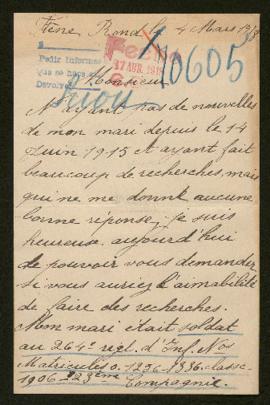 4 Mars
Pedir Informes
Devolver
10605
Monsieur
N'ayant pas de nouvelles
de mon mari depuis le 14
Juin 1915 et ayant fait
beaucoup de recherches, mais
qui ne me donne aucune
bonne réponse, je suis
heureuse aujourd'hui
de pouvoir vous demander
si vous auriez l'aimabilité
de faire des recherches.
Mon mari était soldat
au 264e regt. d'Inf. Nos
Matricules classe
1906 23ème Compagnie.